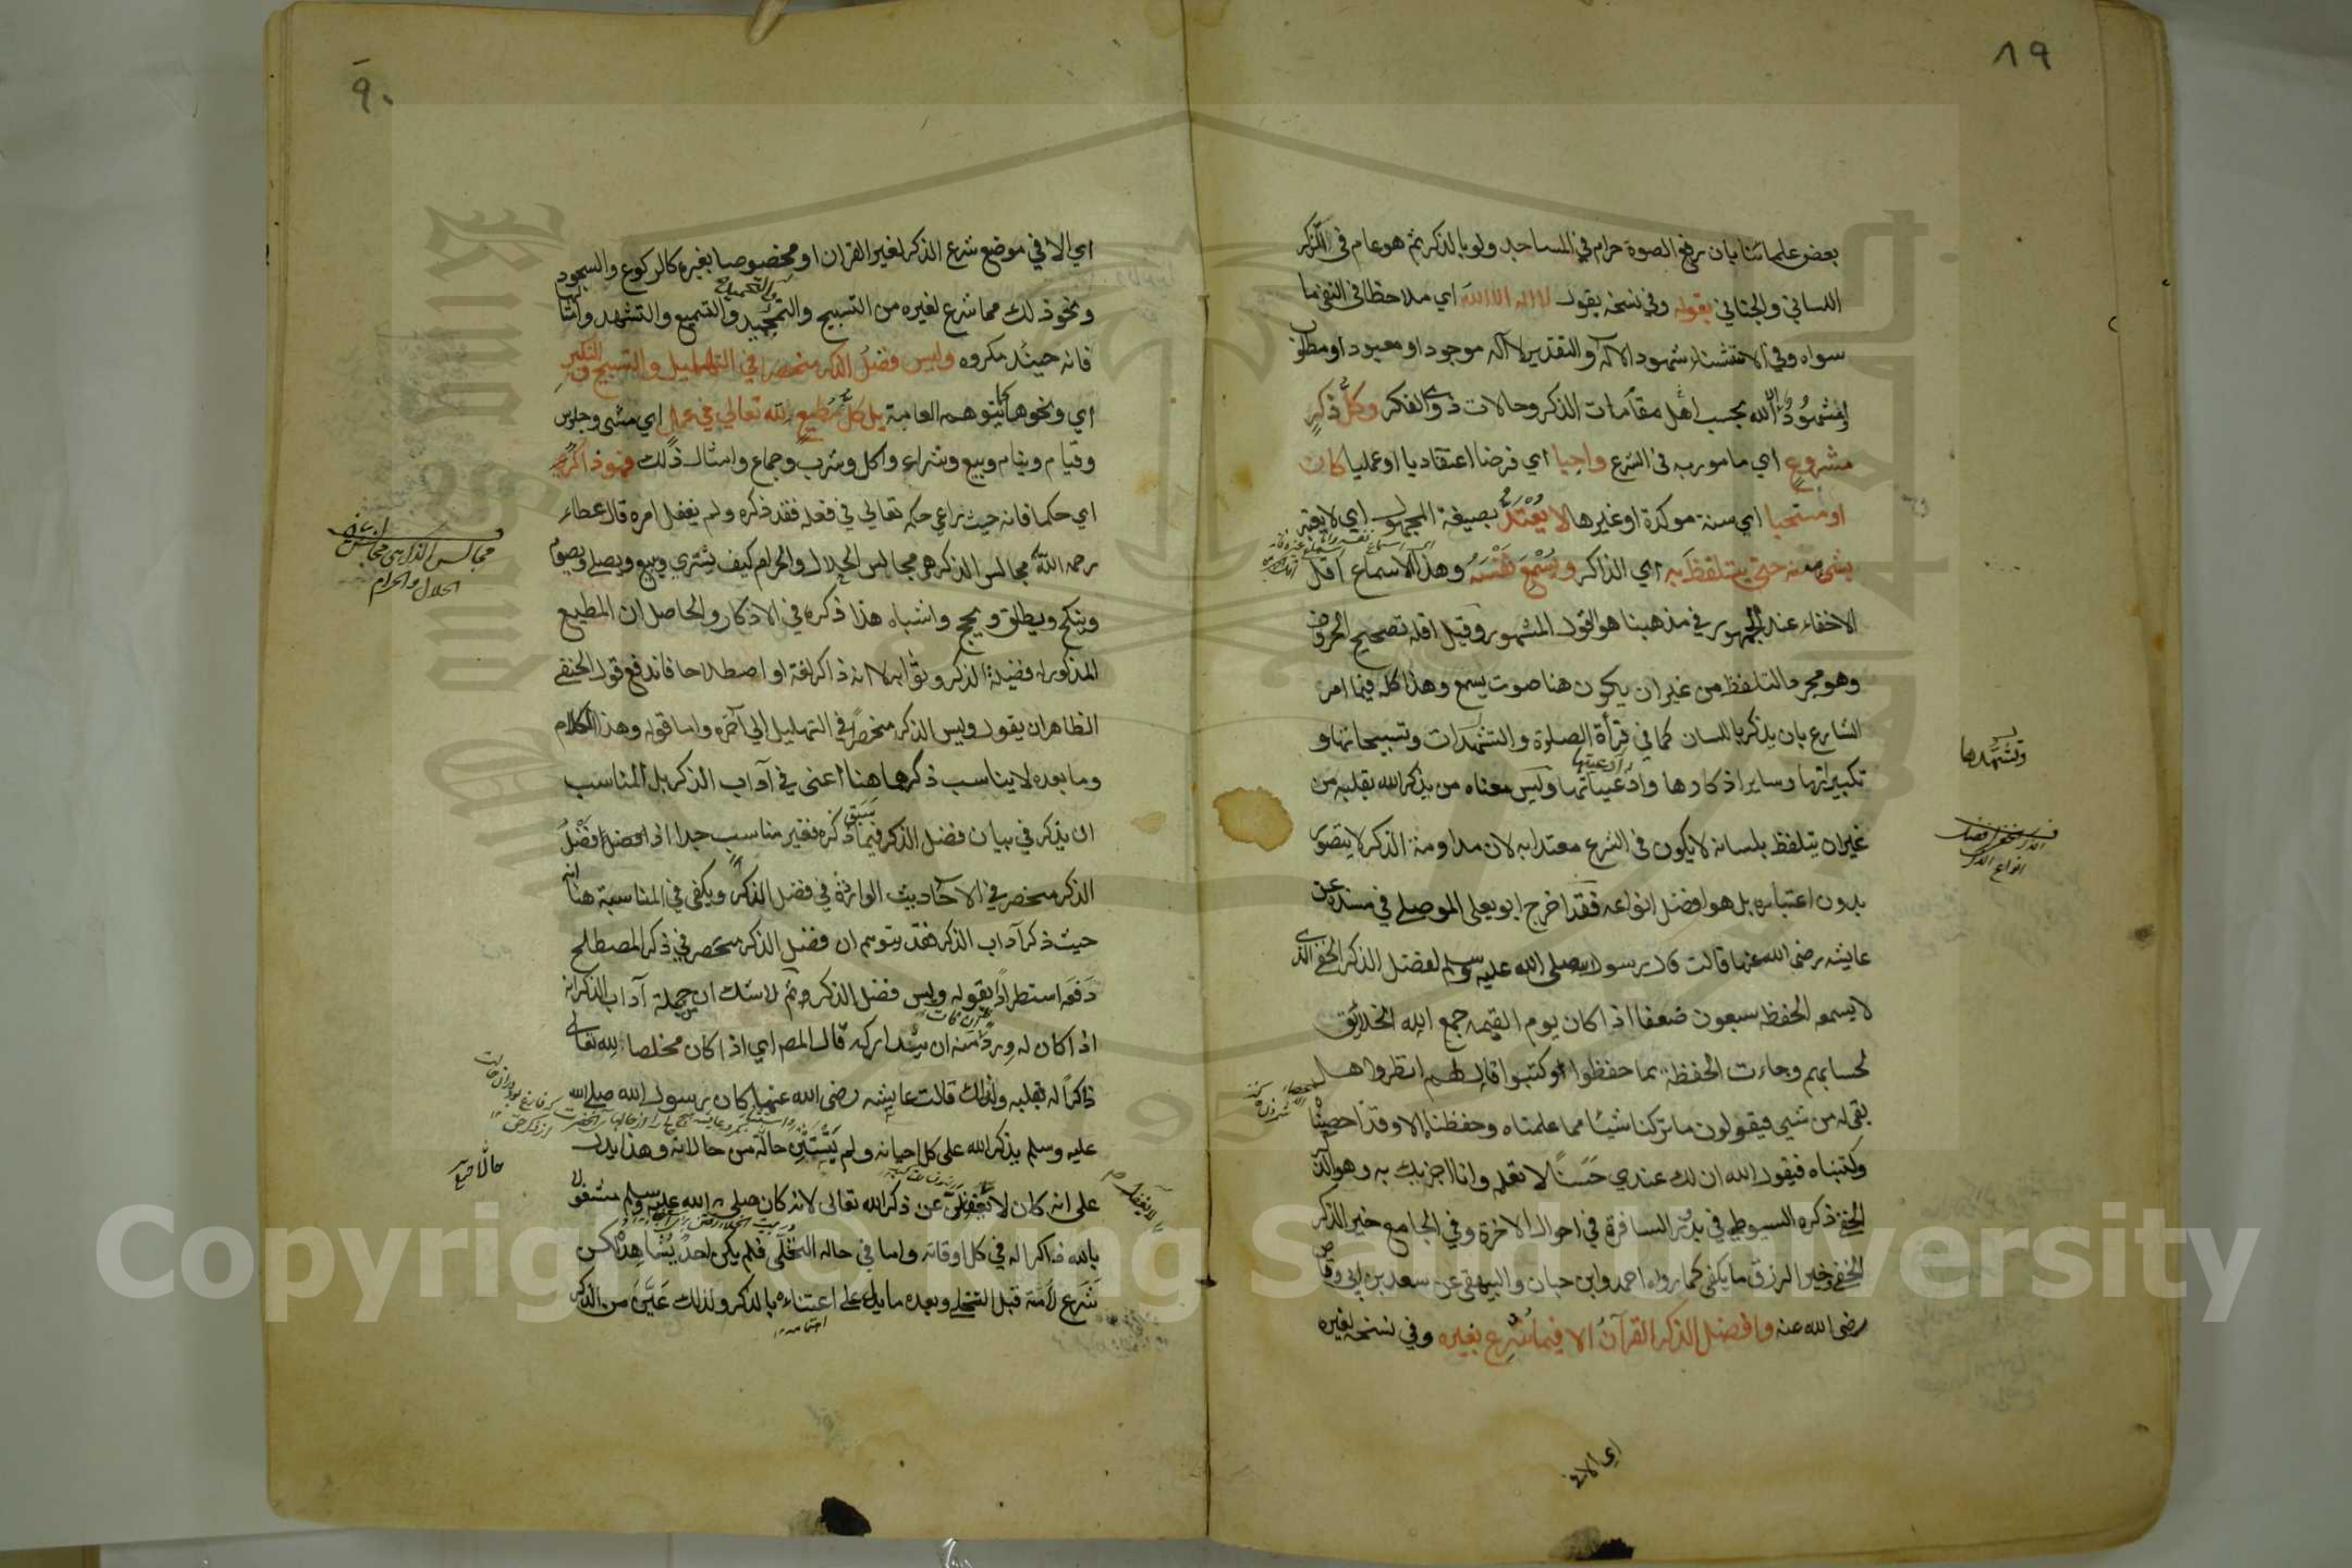 ٨٩
بعض علمائنا بان رفع الصوة حرام في المساجد ولو بالذكر ثم هو عام في الذكر
اللساني والجناني بقوله وفي نسخة يقول لا اله الا الله اي ملاحظا في النفي ما
سواه وفي الاستثناء شهود الاله والتقدير لا اله موجود او معبود او مطلوب
او مشهود الا الله بحسب اهل مقامات الذكر وحالات ذوي الفكر وكل ذكر
مشروع اي مامور به في الشرع واجبا اي فرضا اعتقاديا او عمليا كان
او مستحبا اي سنة موكدة او غيرها لا يعتد بصيغة المجهول اي لا يعتبر
بشئ منه حتى يتلفظ به اي الذاكر ويسمع نفسه وهذا الاسماع اقل
الاخفاء عند الجمهور في مذهبنا هو القول المشهور وقيل اقله تصحيح الحروف
وهو مجرد التلفظ من غير ان يكون هنا صوت يسمع وهذا كله فيما امر
الشارع بان يذكر باللسان كما في قرأة الصلوة والتشهدات وتسبيحاتها و
تكبيراتها وساير اذكارها وادعيتها وليس معناه من يذكر الله بقلبه من
غير ان يتلفظ بلسانه لا يكون في الشرع معتدا به لان مداومة الذكر لا يتصور
بدون اعتباره بل هو افضل انواعه فقد اخرج ابو يعلى الموصلي في مسنده عن
عايشه رضى الله عنها قالت قال رسول الله صلى الله عليه وسلم لفضل الذكر الخفي الذي
لا يسمعه الحفظة سبعون ضعفا اذا كان يوم القيمه جمع الله الخلائق
لحسابهم وجاءت الحفظة بما حفظوا وكتبوا قال لهم انظروا هل
بقى له من شيئ فيقولون ما تركنا شيئا مما علمناه وحفظناه الا وقد احصيناه
وكتبناه فيقول الله ان لك عندي حسنا لا تعلمه وانا اجزيك به وهو الذكر
الخفي ذكره السيوطي في بدور السافرة في احوال الاخرة وفي الجامع خير الذكر
الخفي وخير الرزق ما يكفى كما رواه احمد وابن حبان والبيهقى عن سعد بن ابي وقاص
رضى الله عنه وافضل الذكر القرآن الا فيما شرع بغيره وفي نسخة لغيره
وتشهدها
اي الا في
٩٠
اي الا في موضع شرع الذكر لغير القران او مخصوصا بغيره كالركوع والسجود
ونحو ذلك مما شرع لغيره من التسبيح والتمجيد والتسميع والتشهد وامثالها
والتحميد
فانه حينئد مكروه وليس فضل الذكر منحصرا في التهليل والتسبيح والتكبير
اي ونحوها كما يتوهمه العامة بل كل مطيع لله تعالى في عمل اي مشى وجلوس
وقيام ونيام وبيع وشراء واكل وشرب وجماع وامثال ذلك فهو ذاكر
اي حكما فانه حيث راعى حكمه تعالي في فعله فقد ذكره ولم يغفل امره قال عطاء
رحمه الله مجالس الذكر هو مجالس الحلال والحرام كيف يشتري ويبيع ويصلي ويصوم
وينكح ويطلق ويحج واشباه هذا ذكره في الاذكار والحاصل ان المطيع
المذكور له فضيلة الذكر وثوابه لا انه ذاكر لغة او اصطلاحا فاندفع قول الحنفي
الظاهر ان يقول وليس الذكر منحصرا في التهليل الي آخره واما قوله وهذا الكلام
وما بعده لا يناسب ذكرها هنا اعنى في آداب الذكر بل المناسب
ان يذكر في بيان فضل الذكر فيما سبق ذكره فغير مناسب جدا اذ افضل افضل
الذكر منحصر في الاحاديث الواردة في فضل الذكر ويكفى في المناسبة هنا انه
حيث ذكر آداب الذكر فقد يتوهم ان فضل الذكر منحصر في ذكر المصطلح
دفعه استطرادا بقوله وليس فضل الذكر وثم لا شك ان من جملة آداب الذكر انه
اذا كان له ورد ان يتداركه قال المص اي اذا كان مخلصا لله تعالى
ذاكرا له بقلبه ولذلك قالت عايشه رضى الله عنها كان رسول الله صلى الله
عليه وسلم يذكر الله على كل احيانه ولم يستثن حالة من حالاته وهذا يدل
على انه كان لا يغفل عن ذكر الله تعالى لانه كان صلى الله عليه وسلم مشغولا
بالله ذاكرا له في كل اوقاته واما في حاله التخلى فلم يكن احد يشاهده لكن
شرع لامته قبل التخلي وبعده ما يدل على اعتنائه بالذكر ولذلك عين من الذكر
مجالس الذكر هي مجالس
الحلال والحرام
Copyright © King Saud University